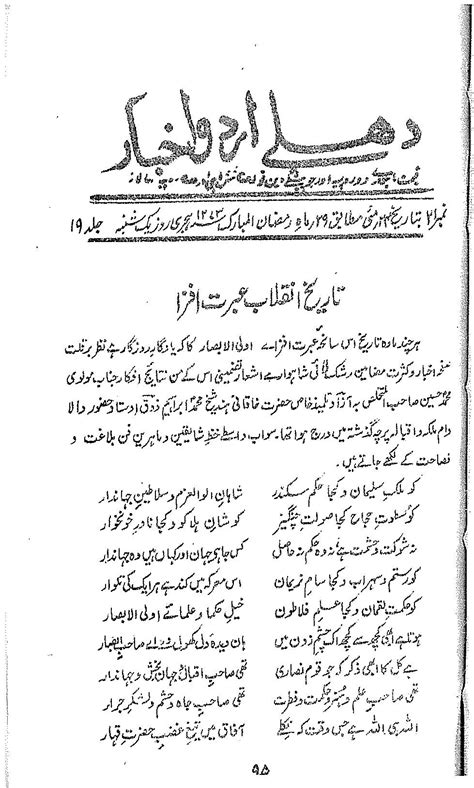 دهلی اردو اخبار
نمبر ۲۱ بتاریخ ۲۴ مئی مطابق ۲۹ ماہ رمضان المبارک ۱۲۷۳ ہجری روز یک شنبہ جلد ۱۹
تاریخ انقلاب عبرت افزا
ہر چند مادہ تاریخ اس سانحہ عبرت افزاے اولی الابصار کا کہ یادگار روزگار ہے نظر بر قلت
صفحہ اخبار و کثرت مضامین اشعار تضمینی اس کے من نتائج افکار جناب مولوی
محمد حسین صاحب المتخلص بہ آزاد تلمیذ خاص حضرت خاقانی ہند شیخ محمد ابراہیم ذوق اوستاد حضور والا
دام ملکہ و اقبالہ پرچہ گذشتہ میں درج ہوا تھا۔ سواب واسطے حظ شایقین و ماہرین فن بلاغت و
فصاحت کے لکھے جاتے ہیں۔
کو ملکِ سلیمان و کجا حکم سکندر شاہان الوالعزم و سلاطینِ جہاندار
کو سطوتِ حجاج کجا صولتِ چنگیز کو شانِ ہلاکو و کجا نادرِ خونخوار
نہ شوکت و حشمت ہے نہ وہ حکم نہ حاصل کس جا ہے جہان اور کہاں ہیں وہ جہاندار
کو رستم و سہراب و کجا سامِ نریمان اس معرکہ میں کند ہے ہر ایک کی تلوار
کو حکمتِ لقمان و کجا علمِ فلاطون خیلِ حکما و علمائے اولی الابصار
ہوتا ہے ابھی کچھ سے کچھ اک چشم زدن میں ہاں دیدۂ دل کھول دے اے صاحبِ ابصار
ہے کل کا ابھی ذکر کہ جو قوم نصاریٰ تھی صاحبِ اقبال و جہان بخش و جہاندار
تھی صاحبِ علم و ہنر و حکمت و فطرت تھی صاحبِ جاہ و حشم و لشکرِ جرار
اللہ ہی اللہ ہے جس وقت کہ نکلے آفاق میں تیغِ غضبِ حضرتِ قہار
۹۵